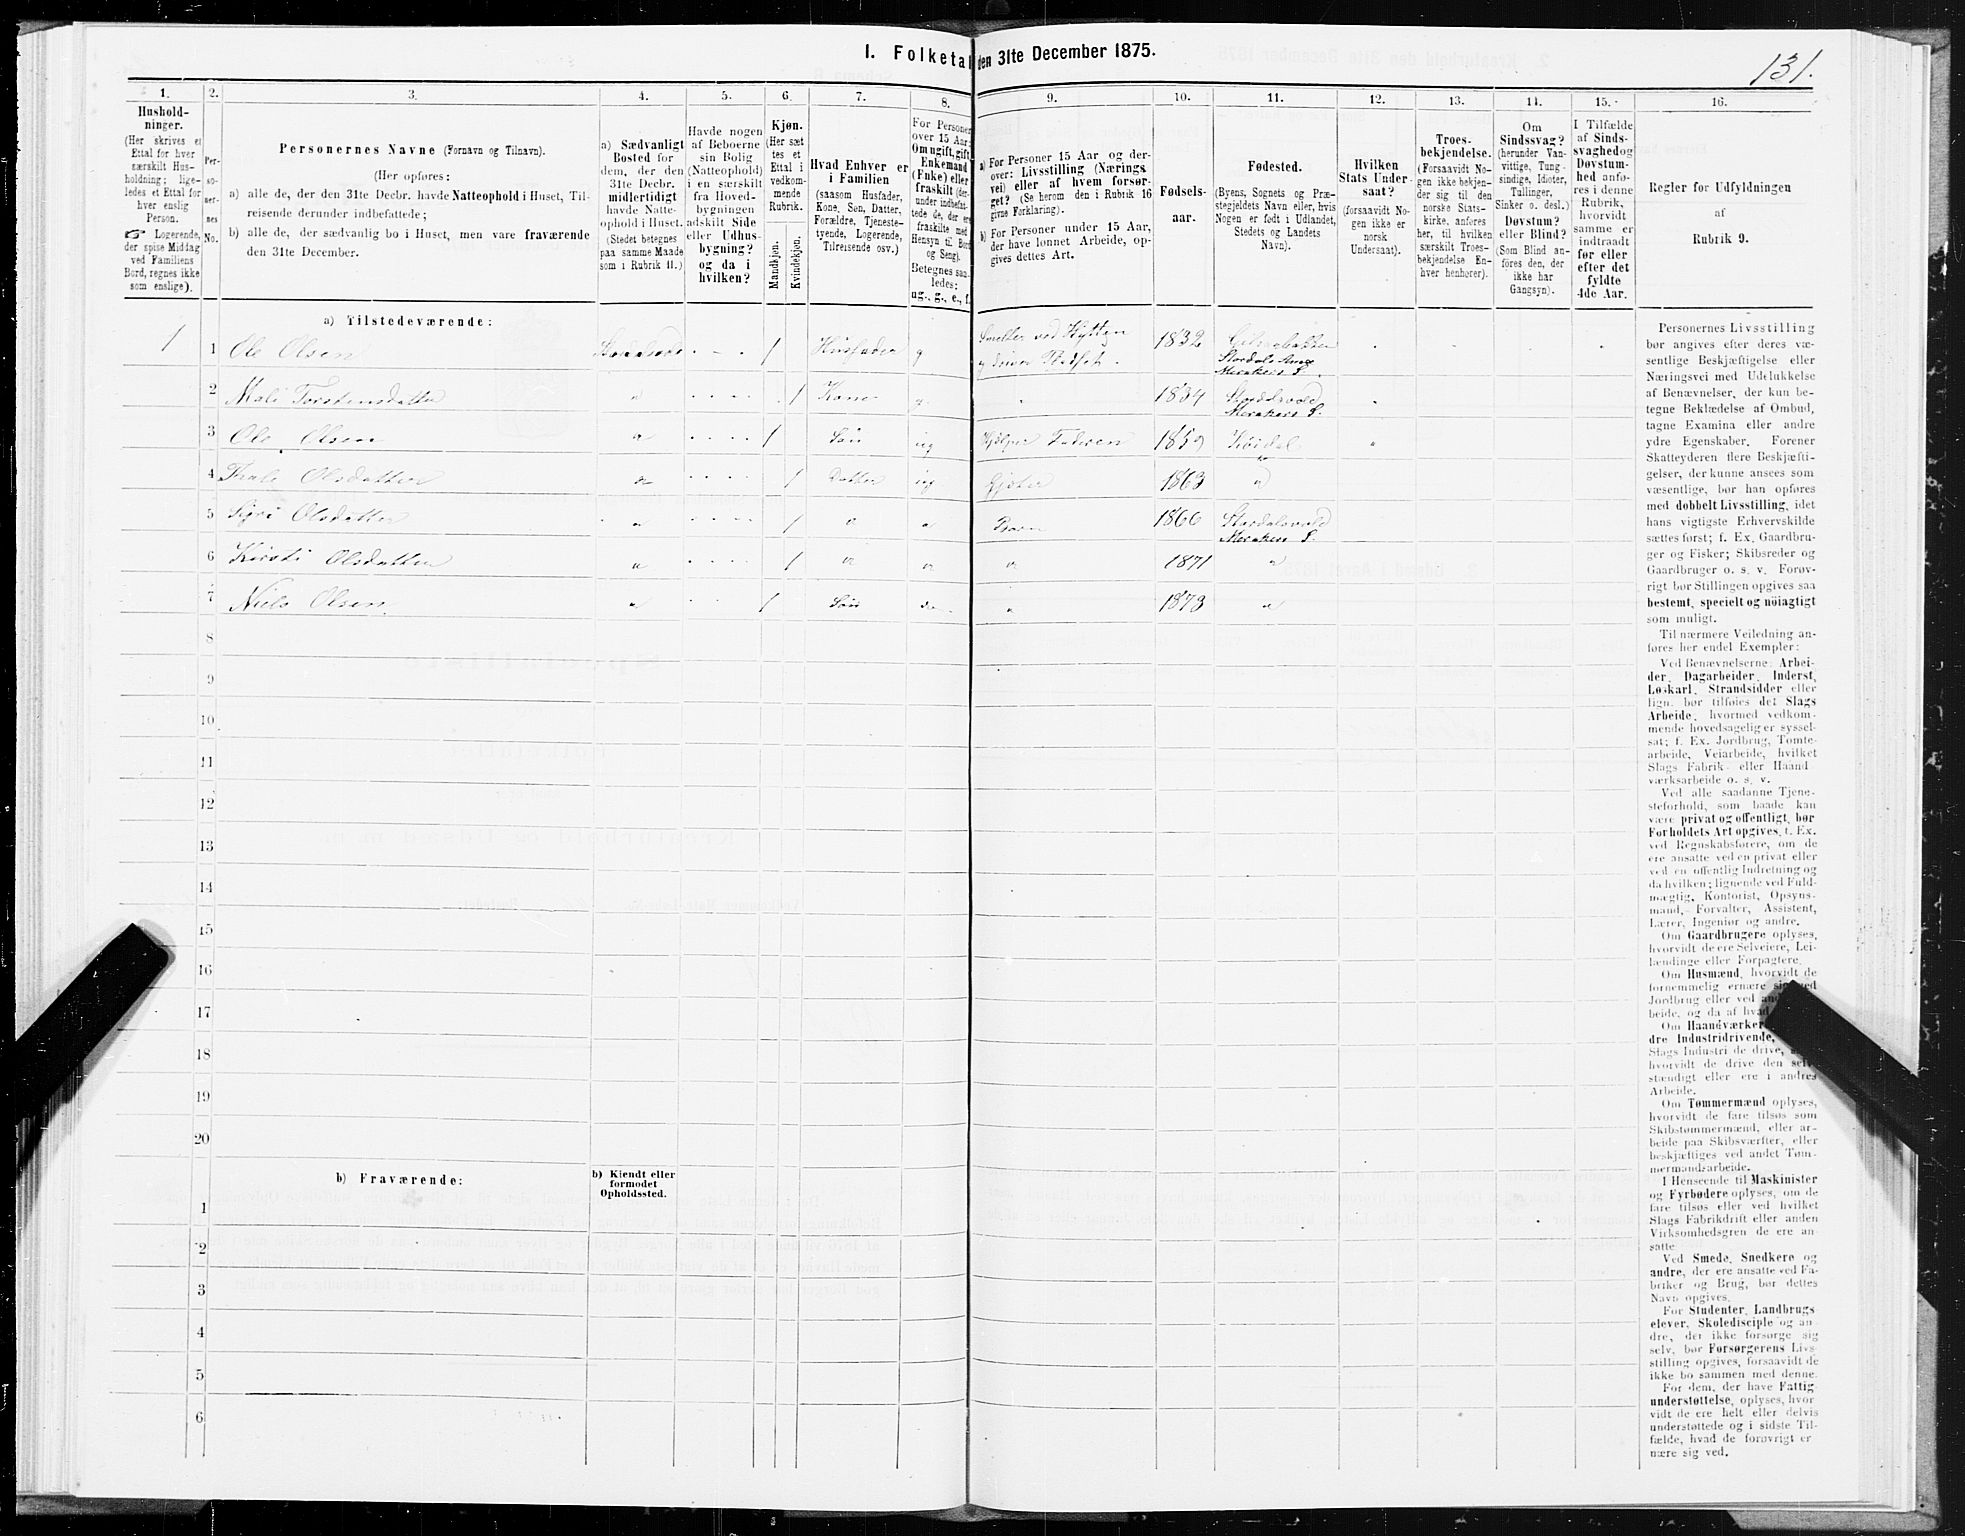 I. Folketal den 31te December 1875.
131.
1.
2.
3.
4.
5.
6.
7.
8.
9.
10.
11.
12.
13.
14.
15.
16.
Hushold-
ninger.
(Her skrives et
Ettal for hver
særskilt Hus-
holdning; lige-
ledes et Ettal for
hver enslig
Person.
☞ Logerende,
der spise Middag
ved Familiens
Bord, regnes ikke
som enslige).
Per-
so-
ner-
nes
No.
Personernes Navne (Fornavn og Tilnavn).
(Her opføres:
a) alle de, der den 31te Decbr. havde Natteophold i Huset, Til-
reisende derunder indbefattede;
b) alle de, der sædvanlig bo i Huset, men vare fraværende
den 31te December.
a) Sædvanligt
Bosted for
dem, der den
31te Decbr.
midlertidigt
havde Natte-
ophold i Huset.
(Stedet betegnes
paa samme Maade
som i Rubrik 11.)
Havde nogen
af Beboerne
sin Bolig
(Natteophold)
i en særskilt
fra Hoved-
bygningen
adskilt Side
eller Udhus-
bygning?
og da i
hvilken?
Kjøn.
(Her sæt
tes et
Ettal i
vedkom-
mende
Rubrik.
Mandkjøn.
Kvindekjøn.
Hvad Enhver er
i Familien
(saasom Husfader,
Kone, Søn, Datter,
Forældre, Tjeneste-
tyende, Logerende,
Tilreisende osv.)
For Personer
over 15 Aar:
Om ugift, gift,
Enkemand
(Enke) eller
fraskilt (der-
under indbefat-
tede de, der ere
fraskilte med
Hensyn til Bord
og Seng).
Betegnes saa-
ledes:
ug., g., e., f.
a) For Personer 15 Aar og der-
over: Livsstilling (Nærings
vei) eller af hvem forsør-
get? (Se herom den i Rubrik 16
givne Forklaring).
b) For Personer under 15 Aar,
der have lønnet Arbeide, op-
gives dettes Art.
Fødsels-
aar.
Fødested.
(Byens, Sognets og Præ-
stegjeldets Navn eller, hvis
Nogen er født i Udlandet,
Stedets og Landets
Navn).
Hvilken
Stats Under-
saat?
(forsaavidt No-
gen ikke er
norsk
Undersaat).
Troes-
bekjendelse.
(Forsaavidt No-
gen ikke bekjen-
der sig til den
norske Stats-
kirke, anføres
her, til hvilken
særskilt Troes-
bekjendelse En-
hver henhører).
Om
Sindssvag?
(herunder Van-
vittige, Tung-
sindige, Idioter,
Tullinger,
Sinker o. desl.)
Døvstum?
eller Blind?
(Som Blind an-
føres den, der
ikke har
Gangsyn).
I Tilfælde
af Sinds-
svaghed og
Døvstum-
hed anfø-
res i denne
Rubrik,
hvorvidt
samme er
indtraadt
før eller
efter det
fyldte
4de Aar.
Regler for Udfyldningen
af
Rubrik 9.
a) Tilstedeværende:
1 1 Ole Olsen 1 Husfader g Smelter ved Hytten 1832
Stordals Annex
Merakers S.
2 Mali Torstensdatter " 1 Kone g. " 1834 Stordalsvold "
Merakers S.
3 Ole Olsen " 1 Søn ug Hjelper Faderen 1859 "
4 Olsdatter " 1 Datter ug Gjeter 1863 "
5 Sigri Olsdatter " 1 " " Barn 1866 Stordalsvold
Merakers S.
6 Kirsti Olsdatter " 1 " " " 1871 "
7 Niels Olsen " 1 Søn " 1873 "
8
9
10
11
12
13
14
15
16
17
18
19
20
b) Fraværende:
b) Kjendt eller
formodet
Opholdssted.
1
2
3
4
5
6
Personernes Livsstilling
bør angives efter deres væ-
sentlige Beskjæftigelse eller
Næringsvei med Udelukkelse
af Benævnelser, der kun be-
tegne Beklædelse af Ombud,
tagne Examina eller andre
ydre Egenskaber. Forener
Skatteyderen flere Beskjæfti-
gelser, der kunne ansees som
væsentlige, bør han opføres
med dobbelt Livsstilling, idet
hans vigtigste Erhvervskilde
sættes først; f. Ex. Gaardbru-
ger og Fisker; Skibsreder og
Gaardbruger o. s. v. Forøv-
rigt bør Stillingen opgives saa
bestemt, specielt og nöiagtigt
som muligt.
Til nærmere Veiledning an-
føres her endel Exempler:
Ved Benævnelserne: Arbei-
der, Dagarbeider, Inderst,
Løskarl, Strandsidder eller
lign. bør tilføies det Slags
Arbeide, hvormed vedkom-
mende hovedsagelig er syssel-
sat; f. Ex. Jordbrug, Tomte-
arbeide, Veiarbeide, hvilket
Slags Fabrik- eller Haand
værksarbeide o. s. v.
Ved alle saadanne Tjene-
steforhold, som baade kan
være privat og offentligt, bør
Forholdets Art opgives, f. Ex.
ved Regnskabsførere, om de
ere ansatte ved en privat eller
ved en offentlig Indretning og
da hvilken; lignende ved Fuld-
mægtig, Kontorist, Opsyns-
mand, Forvalter, Assistent,
Lærer, Ingeniør og andre.
Om Gaardbrugere oplyses,
hvorvidt de ere Selveiere, Lei-
lændinge eller Forpagtere.
Om Husmænd, hvorvidt de
fornemmelig ernære sig ved
Jordbrug eller ved
beide, og da af hvad
Om Haandværker
dre Industridrivende,
Slags Industri de drive,
hvorvidt de drive den selv-
stændigt eller ere i andres
Arbeide.
Om Tømmermænd oplyses,
hvorvidt de fare tilsøs som
Skibstømmermænd, eller ar-
beide paa Skibsværfter, eller
beskjæftiges ved andet Tøm-
mermandsarbeide.
I Henseende til Maskinister
og Fyrbødere oplyses, om de
fare tilsøs eller ved hvilket
Slags Fabrikdrift eller anden
Virksomhedsgren de ere an-
satte
Ved Smede, Snedkere og
andre, der ere ansatte ved Fa-
briker og Brug, bør dettes
Navn opgives.
For Studenter, Landbrugs-
elever, Skoledisciple og an-
dre, der ikke forsørge sig
selv, bør Forsørgerens Livs-
stilling opgives, forsaavidt de
ikke bo sammen med denne.
For dem, der have Fattig-
understøttelse, oplyses, hvor
vidt de ere helt eller delvis
understøttede og i sidste Til-
fælde, hvad de forøvrigt er
nære sig ved.